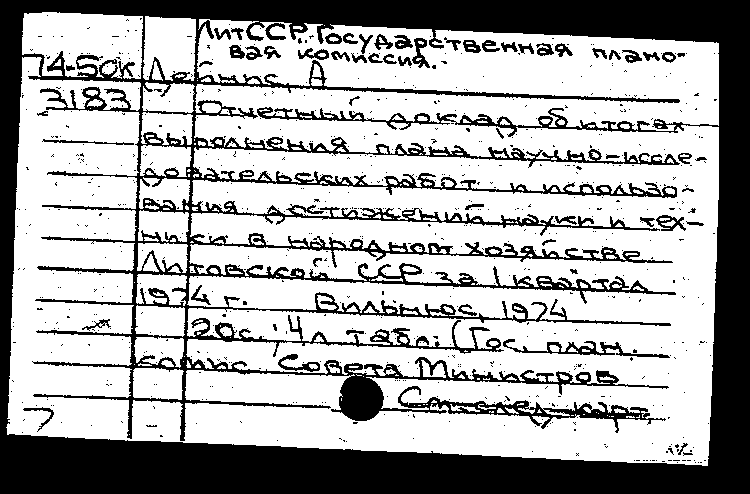 ЛитССР. Государственная плано-
вая комиссия.
74-50к Дейнис, А
3183 Отчетный доклад об итогах
выполнения плана научно-иссле-
довательских работ и использо-
вания достижений науки и тех-
ники в народном хозяйстве
Литовской ССР за 1 квартал
1974 г. Вильнюс, 1974
20с.; 4л табл. (Гос. план.
комис Совета Министров
См. след. карт.